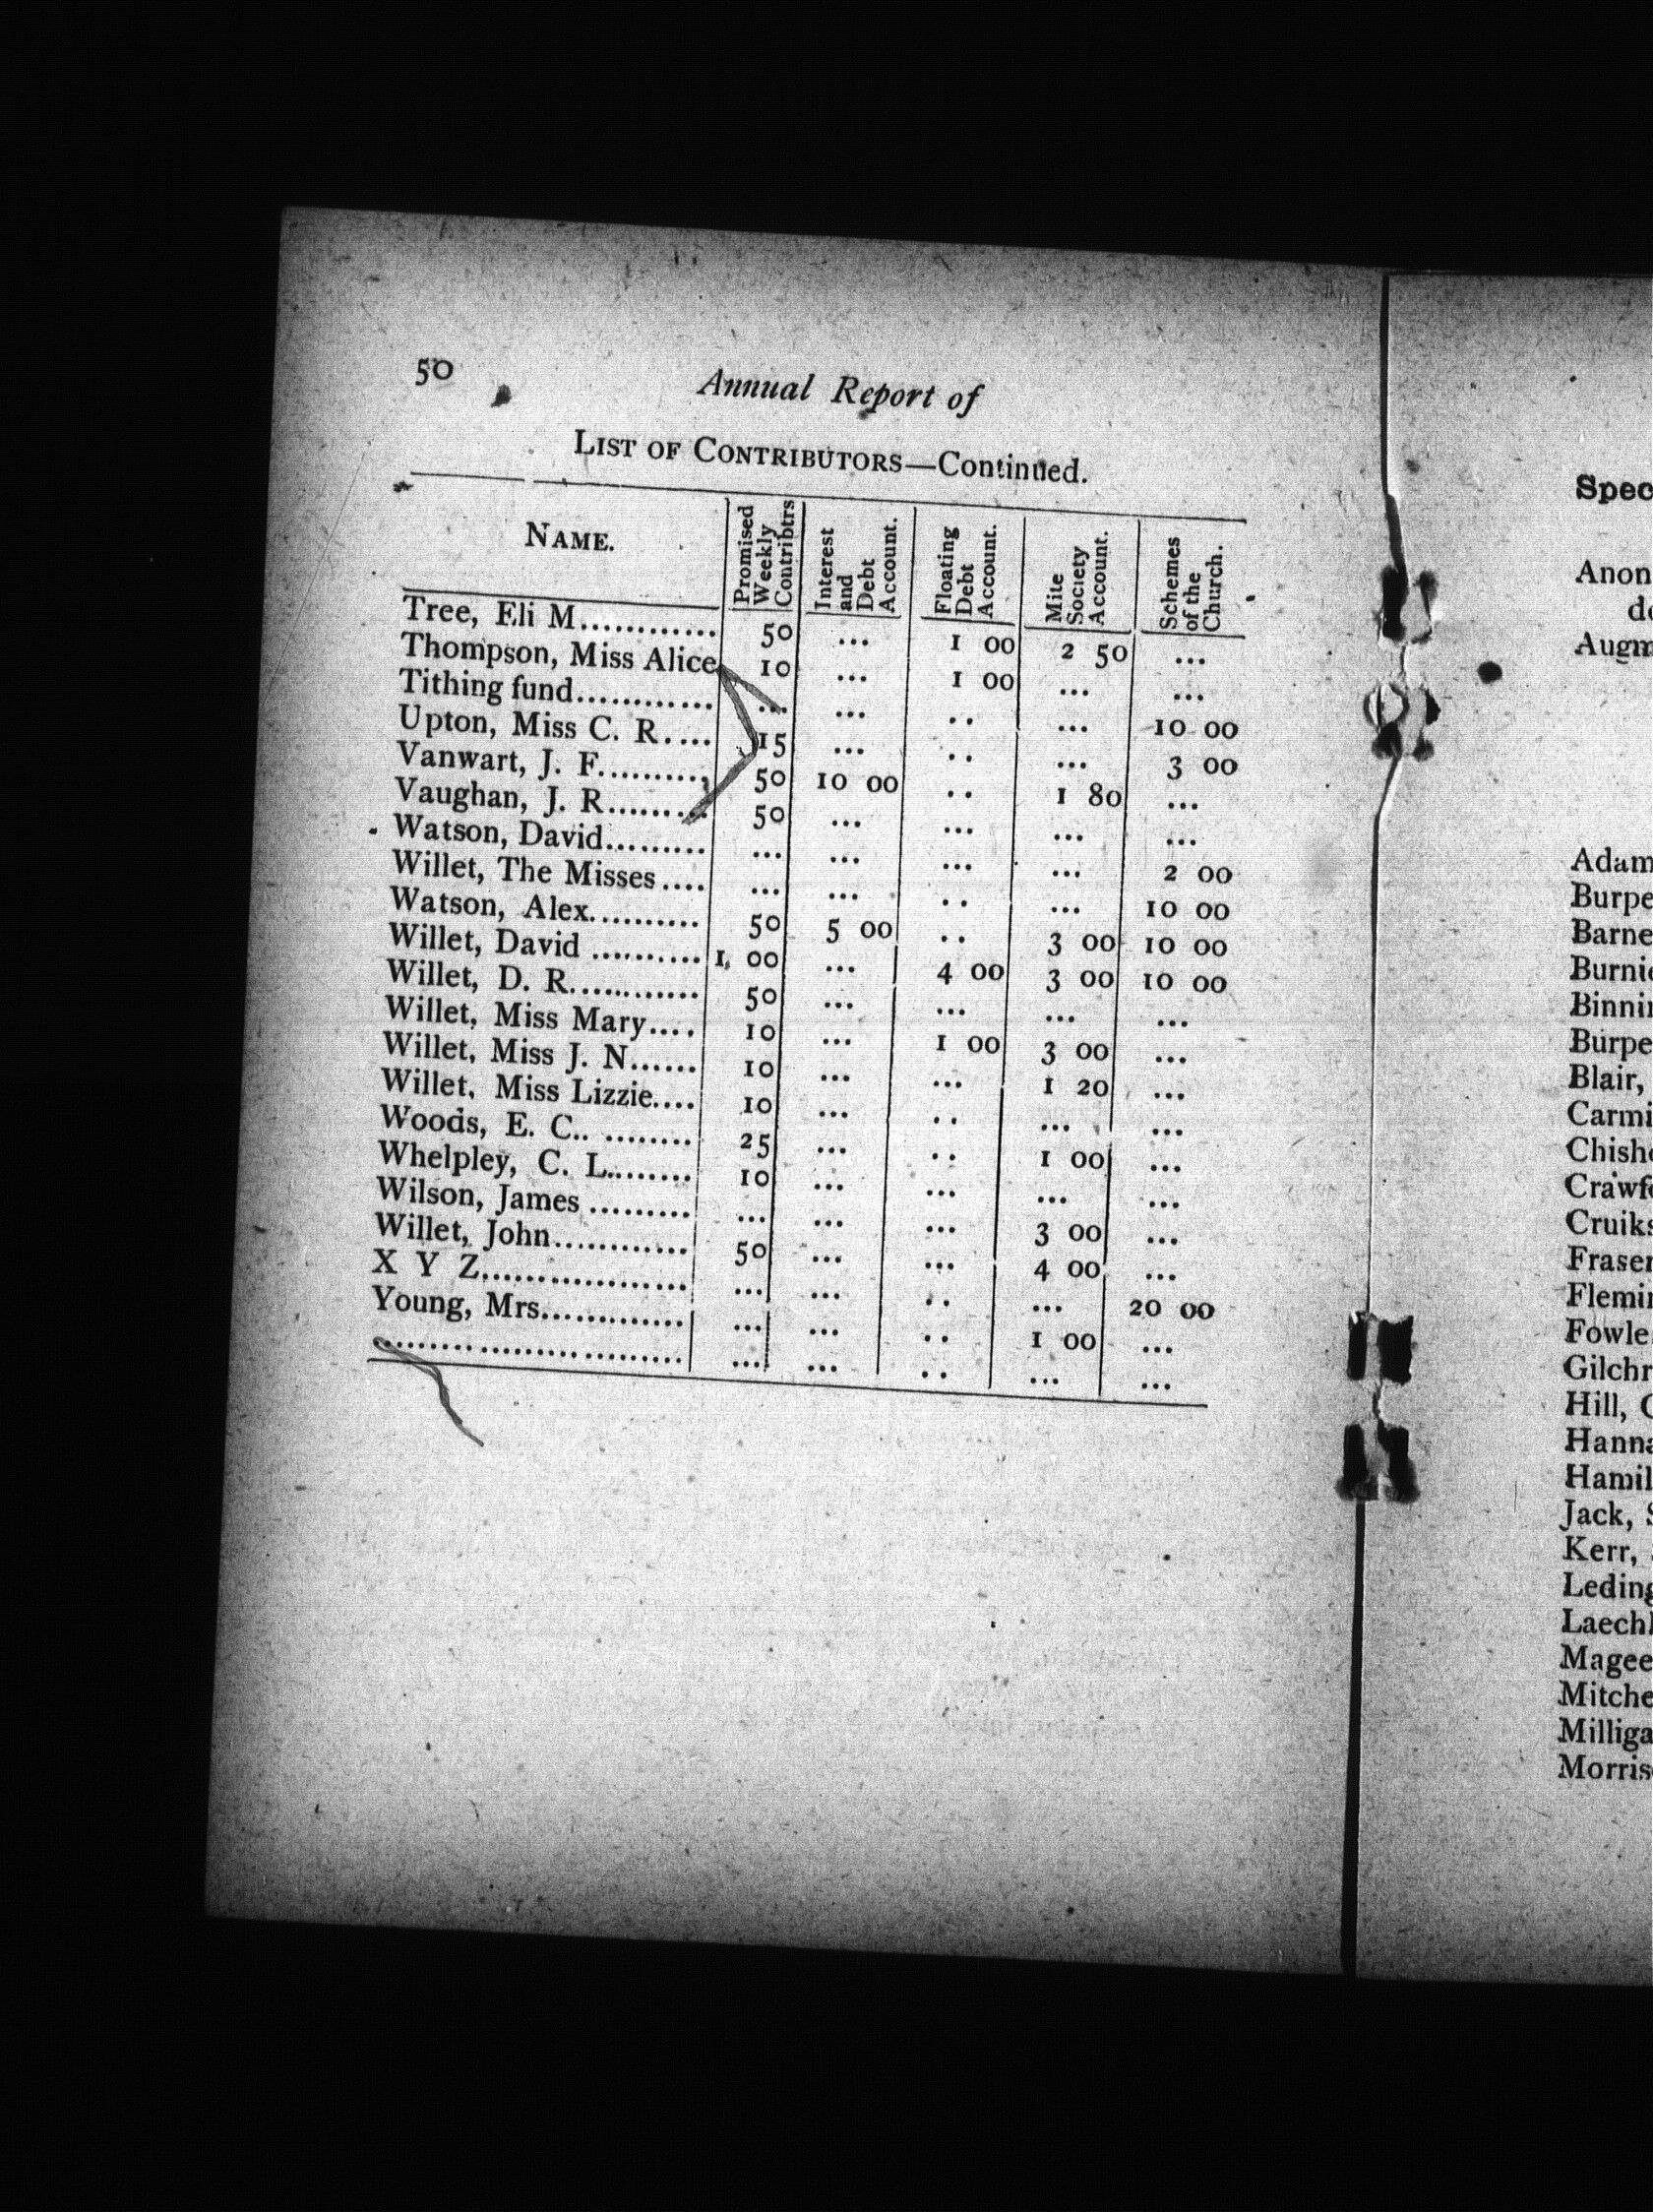 50
Annual Report of
LIST OF CONTRIBUTORS—Continued.
NAME. Promised Weekly Contribtrs Interest and Debt Account. Floating Debt Account. Mite Society Account. Schemes of the Church.
Tree, Eli M............ 50 ... 1 00 2 50 ...
Thompson, Miss Alice 10 ... 1 00 ... ...
Tithing fund............ ... ... .. ... 10 00
Upton, Miss C. R.... 15 ... .. ... 3 00
Vanwart, J. F.......... 50 10 00 .. 1 80 ...
Vaughan, J. R......... 50 ... ... ... ...
Watson, David......... ... ... ... ... 2 00
Willet, The Misses.... ... ... .. ... 10 00
Watson, Alex.......... 50 5 00 .. 3 00 10 00
Willet, David .......... 1, 00 ... 4 00 3 00 10 00
Willet, D. R............ 50 ... ... ... ...
Willet, Miss Mary.... 10 ... 1 00 3 00 ...
Willet, Miss J. N...... 10 ... ... 1 20 ...
Willet, Miss Lizzie.... 10 ... .. ... ...
Woods, E. C.. ........ 25 ... .. 1 00 ...
Whelpley, C. L........ 10 ... ... ... ...
Wilson, James ......... ... ... ... 3 00 ...
Willet, John............ 50 ... ... 4 00 ...
X Y Z................... ... ... .. ... 20 00
Young, Mrs............. ... ... .. 1 00 ...
............................ ... ... .. ... ...
Spec
Anon
do
Augm
Adam
Burpe
Barne
Burnie
Binnin
Burpe
Blair,
Carmi
Chisho
Crawfo
Cruiks
Fraser
Flemin
Fowle
Gilchr
Hill,
Hanna
Hamil
Jack,
Kerr,
Leding
Laechl
Magee
Mitche
Milliga
Morris